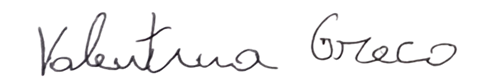 Valentina Greco